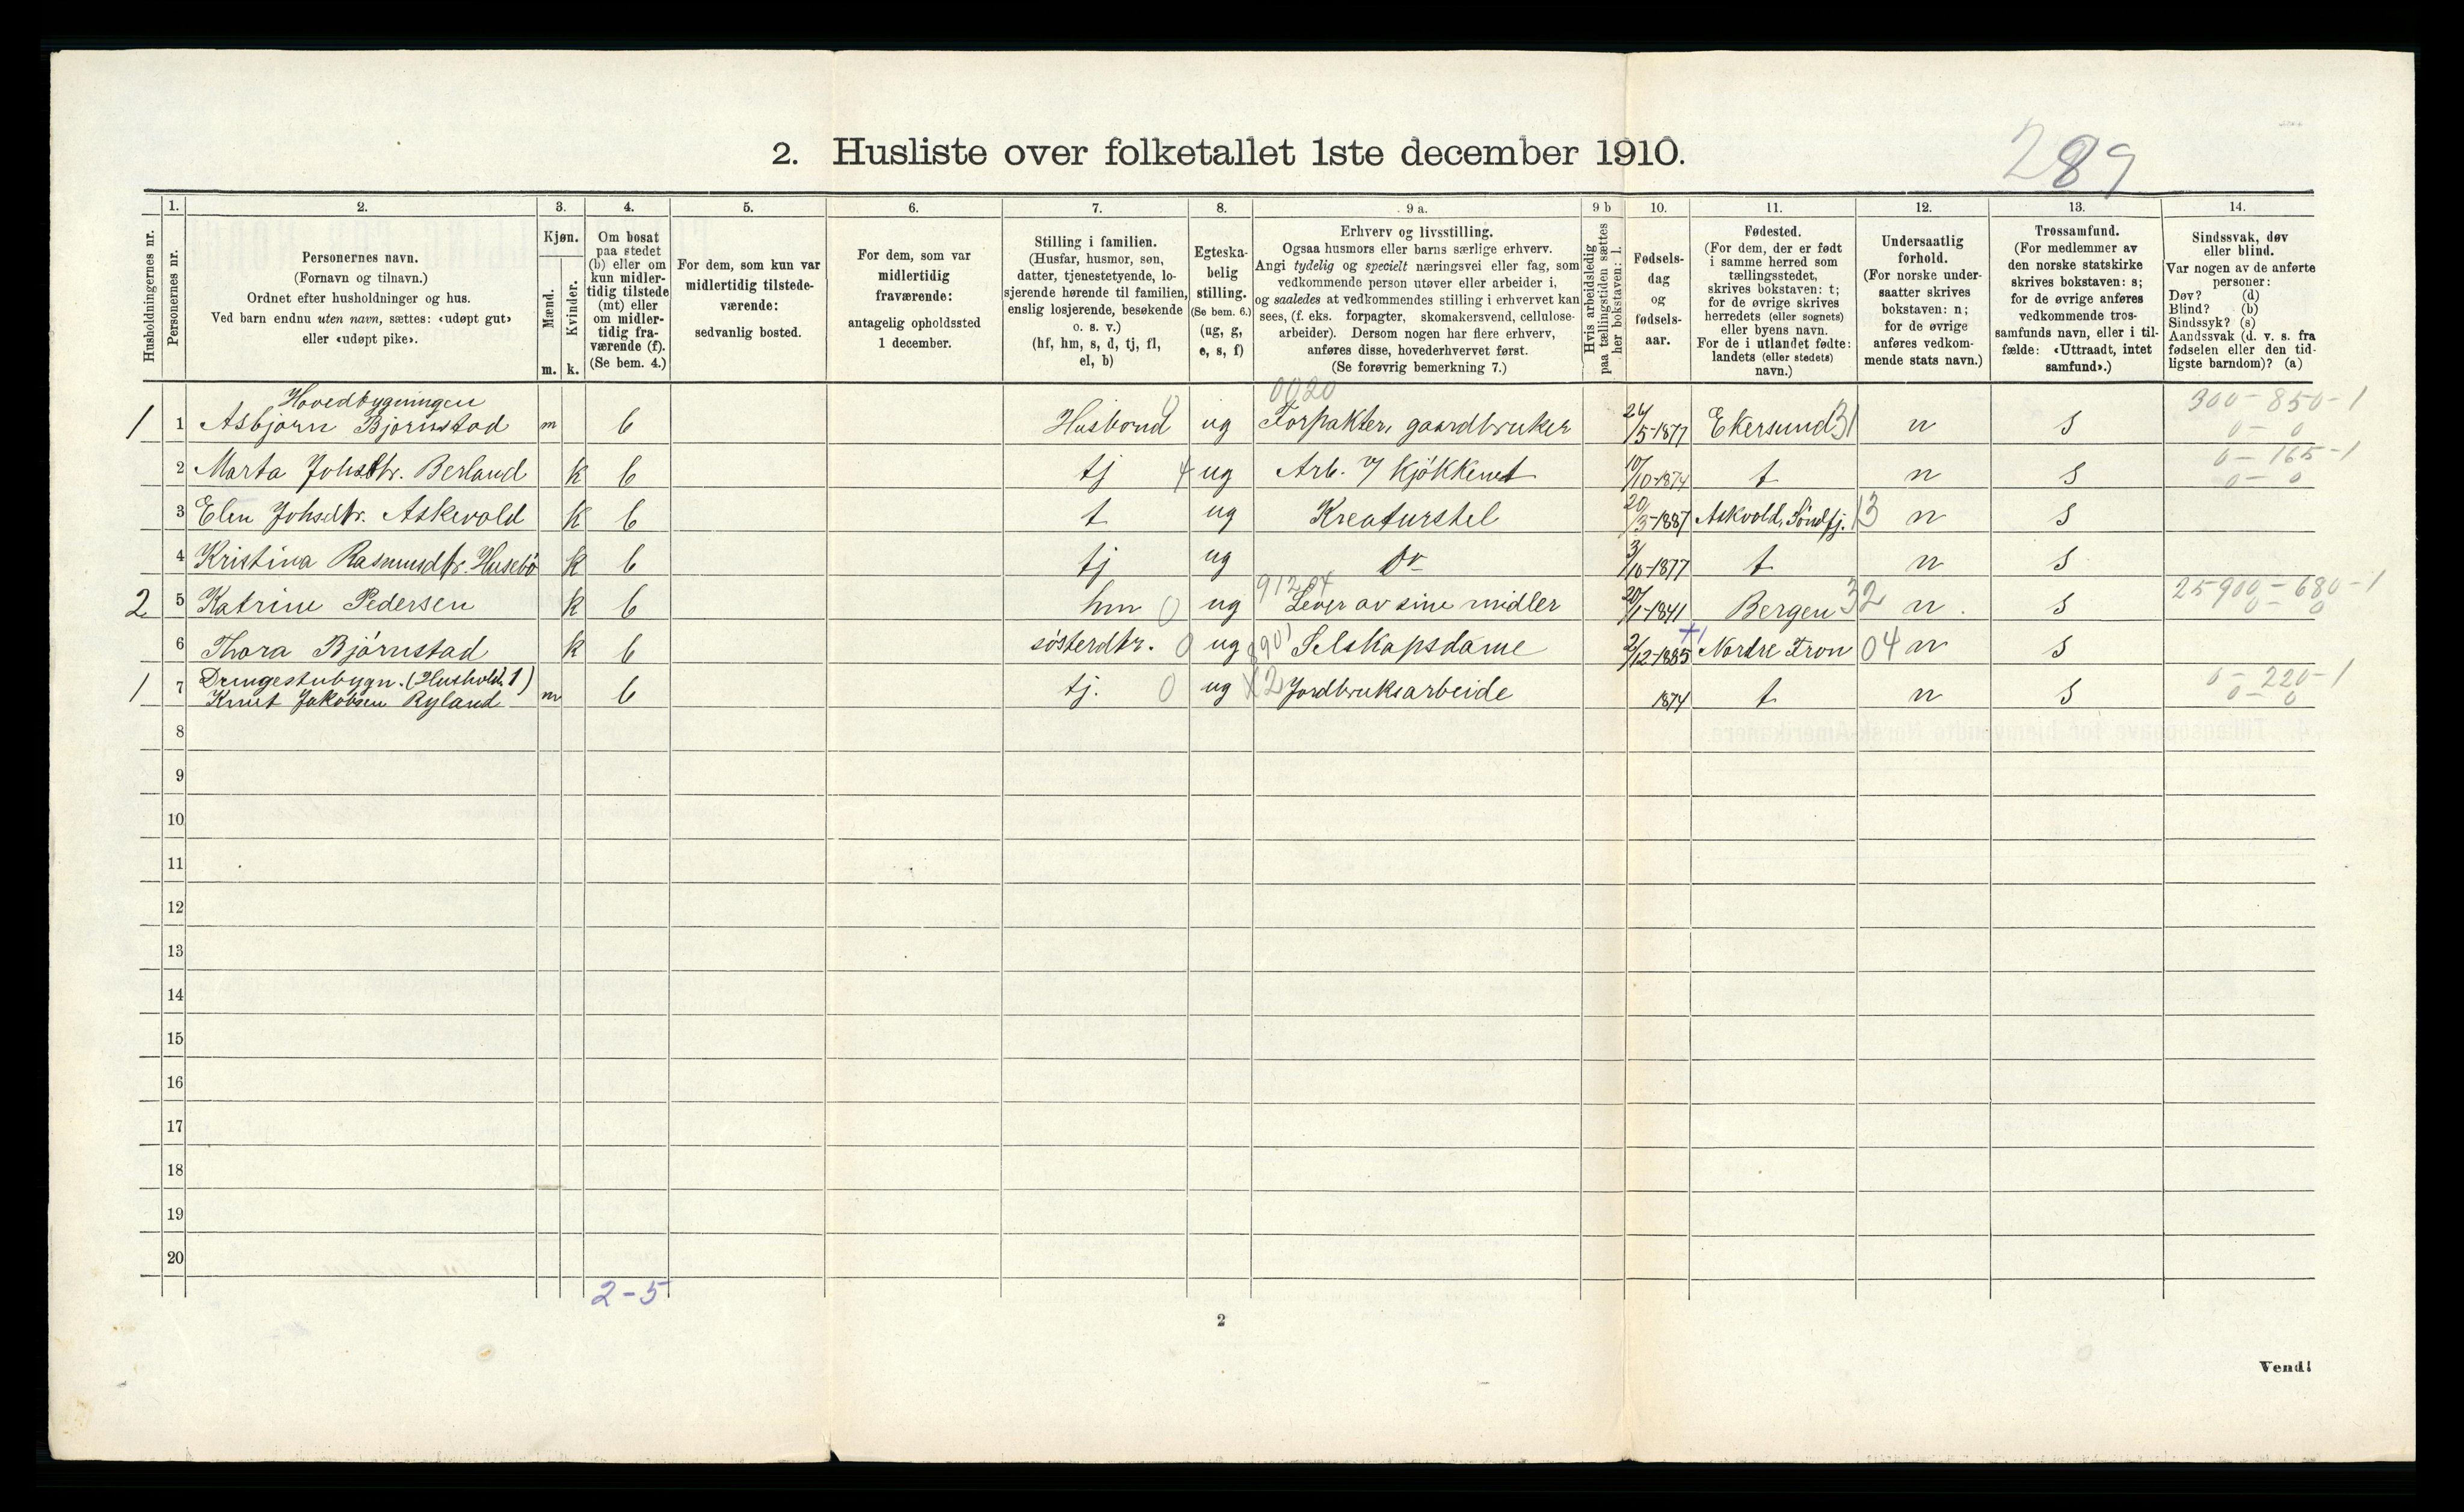 2. Husliste over folketallet 1ste december 1910.
289
Husholdningernes nr.
1.
Personernes nr.
2.
Personernes navn.
(Fornavn og tilnavn.)
Ordnet efter husholdninger og hus.
Ved barn endnu uten navn, sættes: «udøpt gut»
eller «udøpt pike».
3.
Kjøn.
Mænd.
Kvinder.
m. k.
4.
Om bosat
paa stedet
(b) eller om
kun midler-
tidig tilstede
(mt) eller
om midler-
tidig fra-
værende (f).
(Se bem. 4.)
5.
For dem, som kun var
midlertidig tilstede-
værende:
sedvanlig bosted.
6.
For dem, som var
midlertidig
fraværende:
antagelig opholdssted
1 december.
7.
Stilling i familien.
(Husfar, husmor, søn,
datter, tjenestetyende, lo-
sjerende hørende til familien,
enslig losjerende, besøkende
o. s. v.)
(hf, hm, s, d, tj, fl,
el, b)
8.
Egteska-
belig
stilling.
(Se bem. 6.)
(ug, g,
e, s, f)
9 a.
Erhverv og livsstilling.
Ogsaa husmors eller barns særlige erhverv.
Angi tydelig og specielt næringsvei eller fag, som
vedkommende person utøver eller arbeider i,
og saaledes at vedkommendes stilling i erhvervet kan
sees, (f. eks. forpagter, skomakersvend, cellulose-
arbeider). Dersom nogen har flere erhverv,
anføres disse, hovederhvervet først.
(Se forøvrig bemerkning 7.)
9 b
Hvis arbeidsledig
paa tællingstiden sættes
her bokstaven: l.
10.
Fødsels-
dag
og
fødsels-
aar.
11.
Fødested.
(For dem, der er født
i samme herred som
tællingsstedet,
skrives bokstaven: t;
for de øvrige skrives
herredets (eller sognets)
eller byens navn.
For de i utlandet fødte:
landets (eller stedets)
navn.)
12.
Undersaatlig
forhold.
(For norske under-
saatter skrives
bokstaven: n;
for de øvrige
anføres vedkom-
mende stats navn.)
13.
Trossamfund.
(For medlemmer av
den norske statskirke
skrives bokstaven: s;
for de øvrige anføres
vedkommende tros-
samfunds navn, eller i til-
fælde: «Uttraadt, intet
samfund».)
14.
Sindssvak, døv
eller blind.
Var nogen av de anførte
personer:
Døv? (d)
Blind? (b)
Sindssyk? (s)
Aandssvak (d. v. s. fra
fødselen eller den tid-
ligste barndom)? (a)
Hovedbygningen 0020 300 - 850 - 1
1 1 Asbjørn Bjørnstad m b Husbond 0 ug Forpakter, gaardbruker 26/5-1877 Ekersund 31 n s 0 - 0
2 Marta Johsdtr. Berland k b tj 4 ug Arb. i kjøkkenet 10/10-1874 t n s 0 - 165 - 1 0 - 0
3 Elen Johsdtr. Askevold k b t ug Kreaturstel 20/3-1887 Askvold, Söndfj. 13 n s
4 Kristina Rasmusdtr. Husebö k b tj ug Do 3/10-1877 t n s
2 5 Katrine Pedersen k b hm 0 ug 91204 Lever av sine midler 20/1-1841 Bergen 32 n. s 25-900 - 680 - 1 0 - 0
6 Thora Bjørnstad k b søsterdtr. 0 ug 8901 Selskapsdame 2/12-1885 Nordre Fron 04 n s
Drengestubygn. (Hushold. 1)
1 7 Knut Jakobsen Ryland m b tj. 0 ug X2 Jordbruksarbeide 1874 t n s 0 - 220 - 1 0 - 0
8
9
10
11
12
13
14
15
16
17
18
19
20
2 - 5
2
Vend!